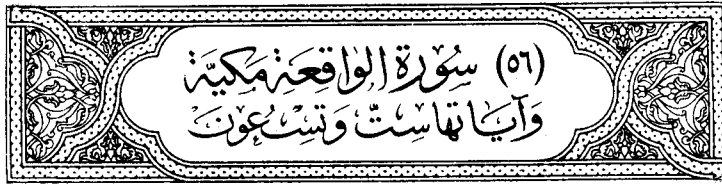 (٥٦) سُورَة الوَاقِعَة مَكيَّة
وَآيَاتهَا سِتّ وَتِسْعُونَ